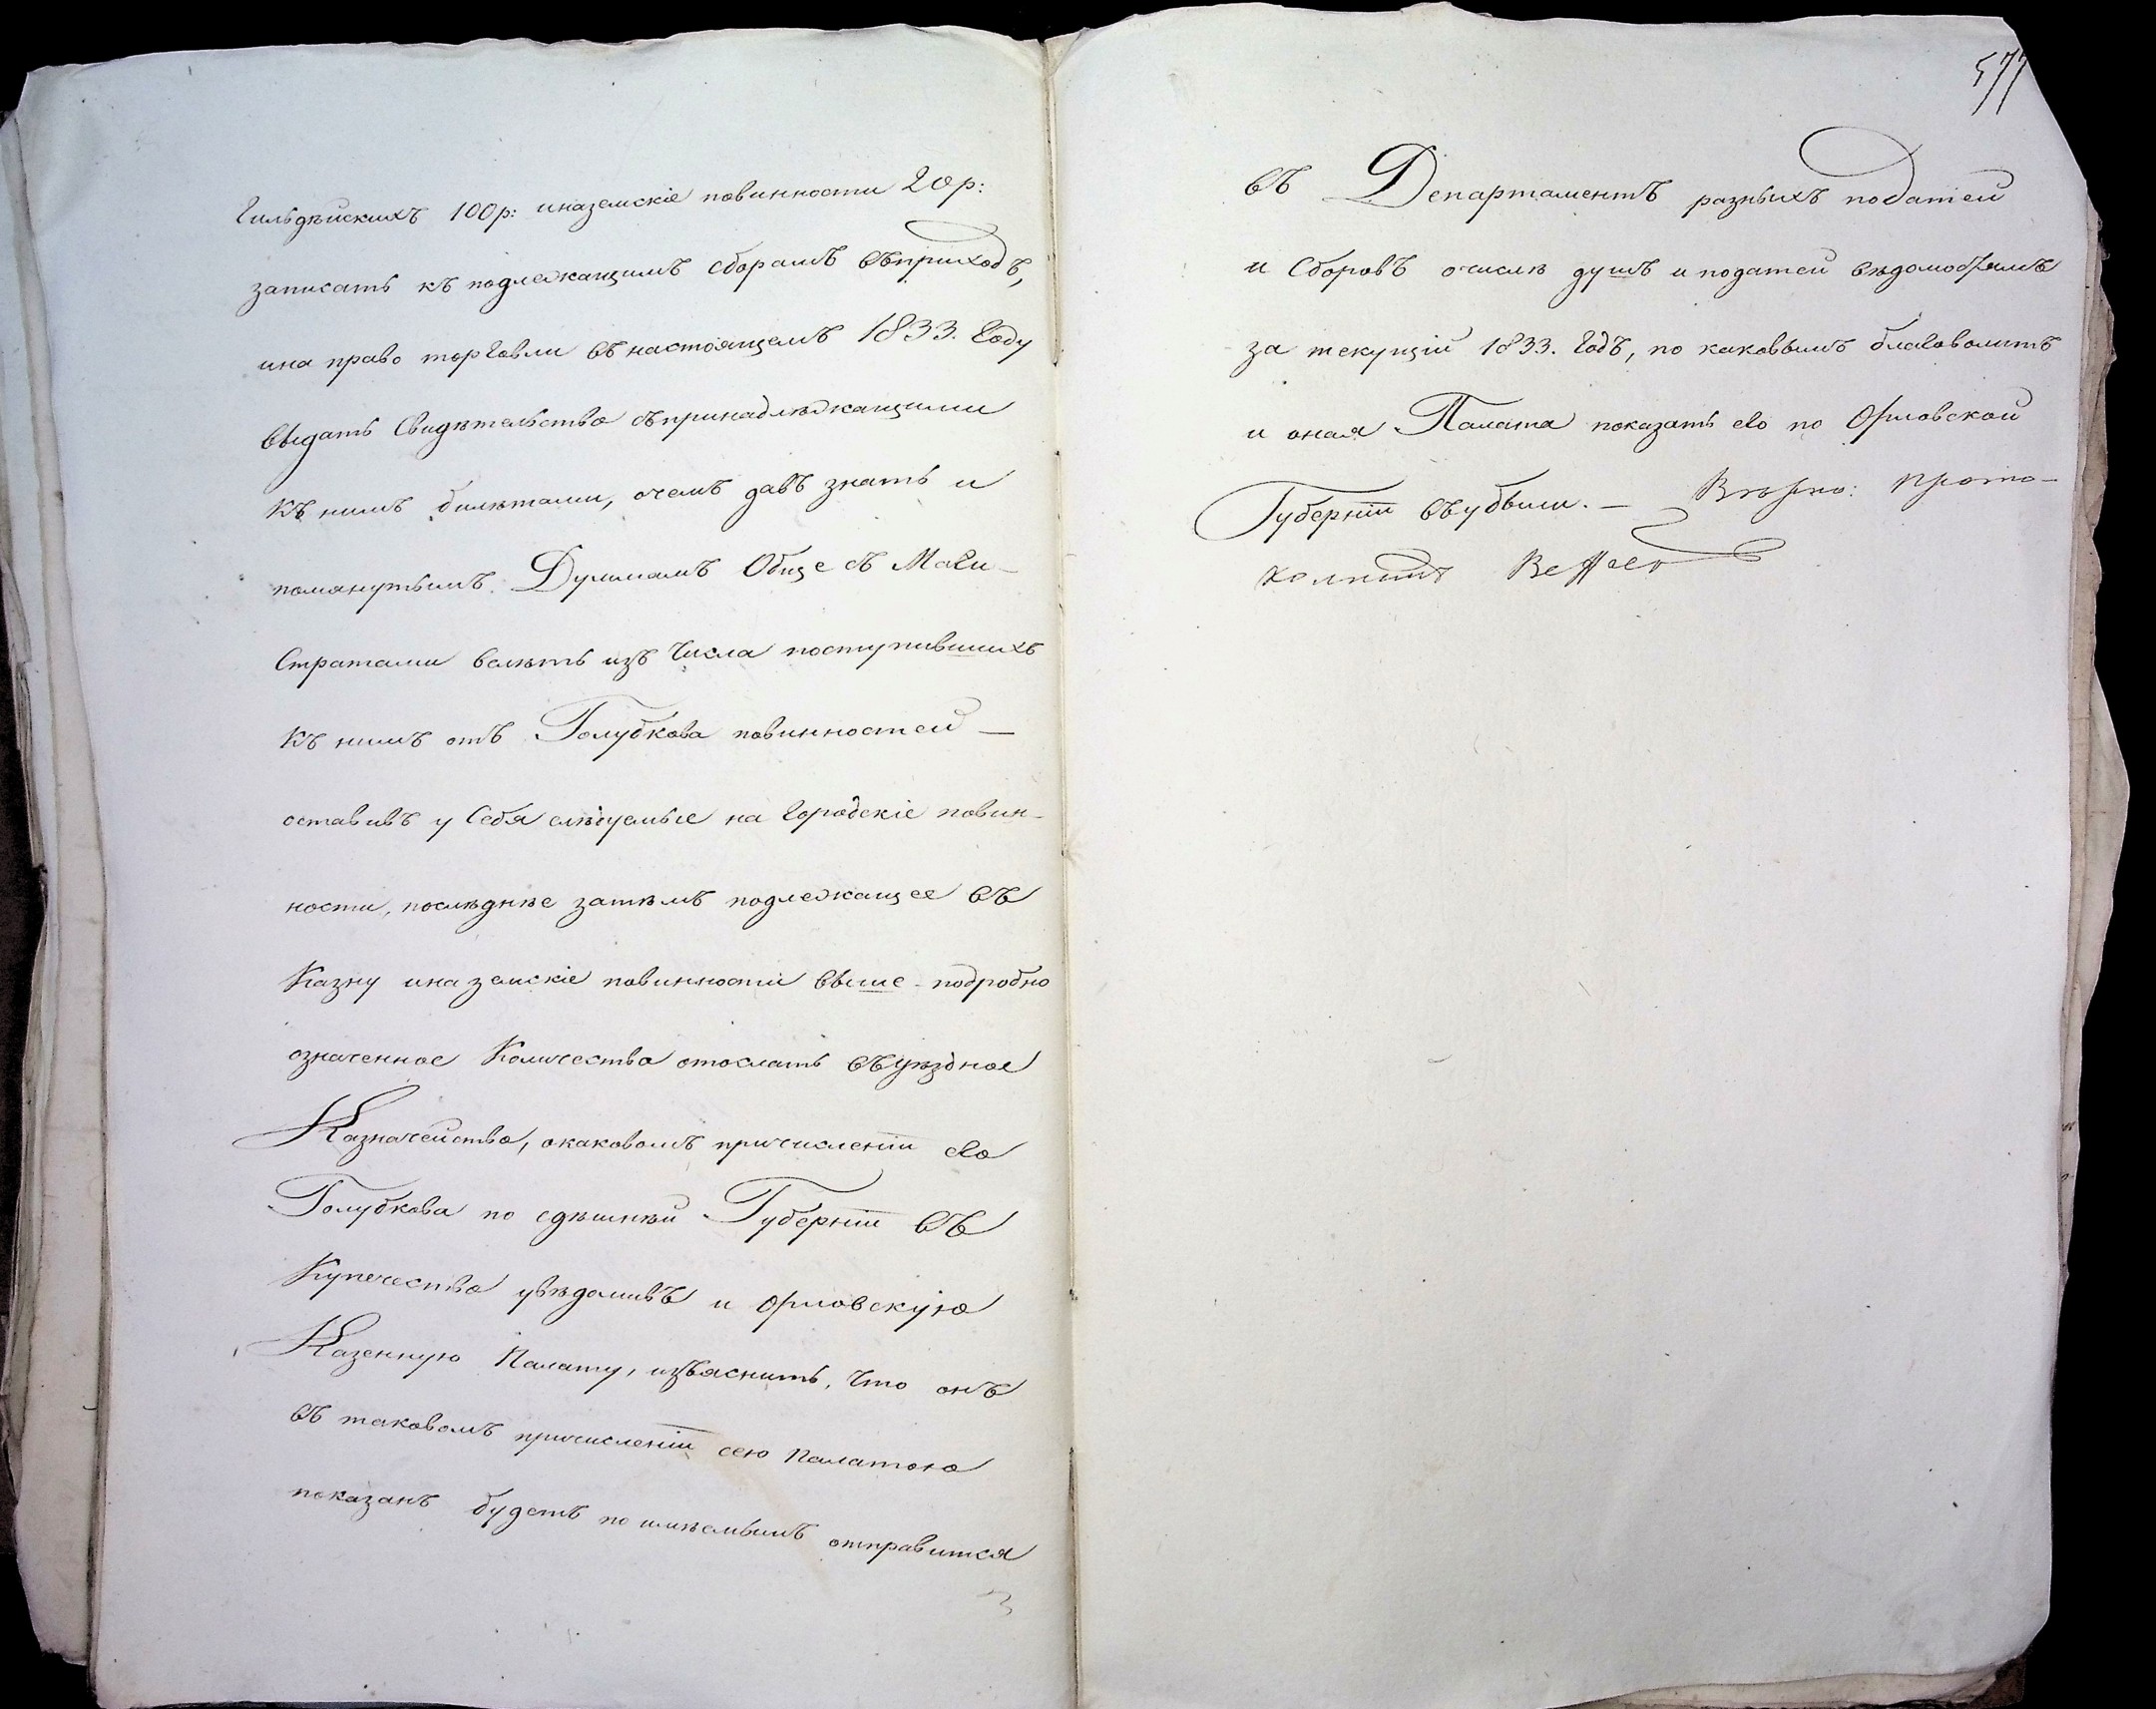 Гильдѣйскихъ 100р: иназемскіе повинности 20р:
записать къ подлежащимъ сборамъ въприходъ,
ина право торговли въ настоящемъ 1833. Году
выдать Свидѣтельство съпринадлѣжащими
къ нимъ билѣтами, очемъ давъ знать и
помянутымъ Думамъ Обще съ Маги-
стратами велѣть изъ Числа поступившихъ
къ нимъ отъ Голубкова повинностей —
оставивъ у Себя слѣдуемые на Городскіе повин-
ности, послѣднѣе затѣмъ подлежащее въ
Казну иназемскіе повинности выше-подробно
означенное Количество отослать въуѣздное
Казначейство, окаковомъ причисленіи его
Голубкова по сдѣшнѣй Губерніи въ
Купечество увѣдомивъ и Орловскую
Казенную Палату, изъяснить, Что онъ
въ таковомъ причисленіи сею Палатою
показанъ будетъ по имѣемымъ отправится
577
въ Департаментъ разныхъ податей
и Сборовъ очислѣ душъ и податей вѣдомостямъ
за текущій 1833. Годъ, по каковымъ благоволитъ
и оная Палата показать его по Орловской
Губерніи въубыли. — Вѣрно: Прото-
колистъ